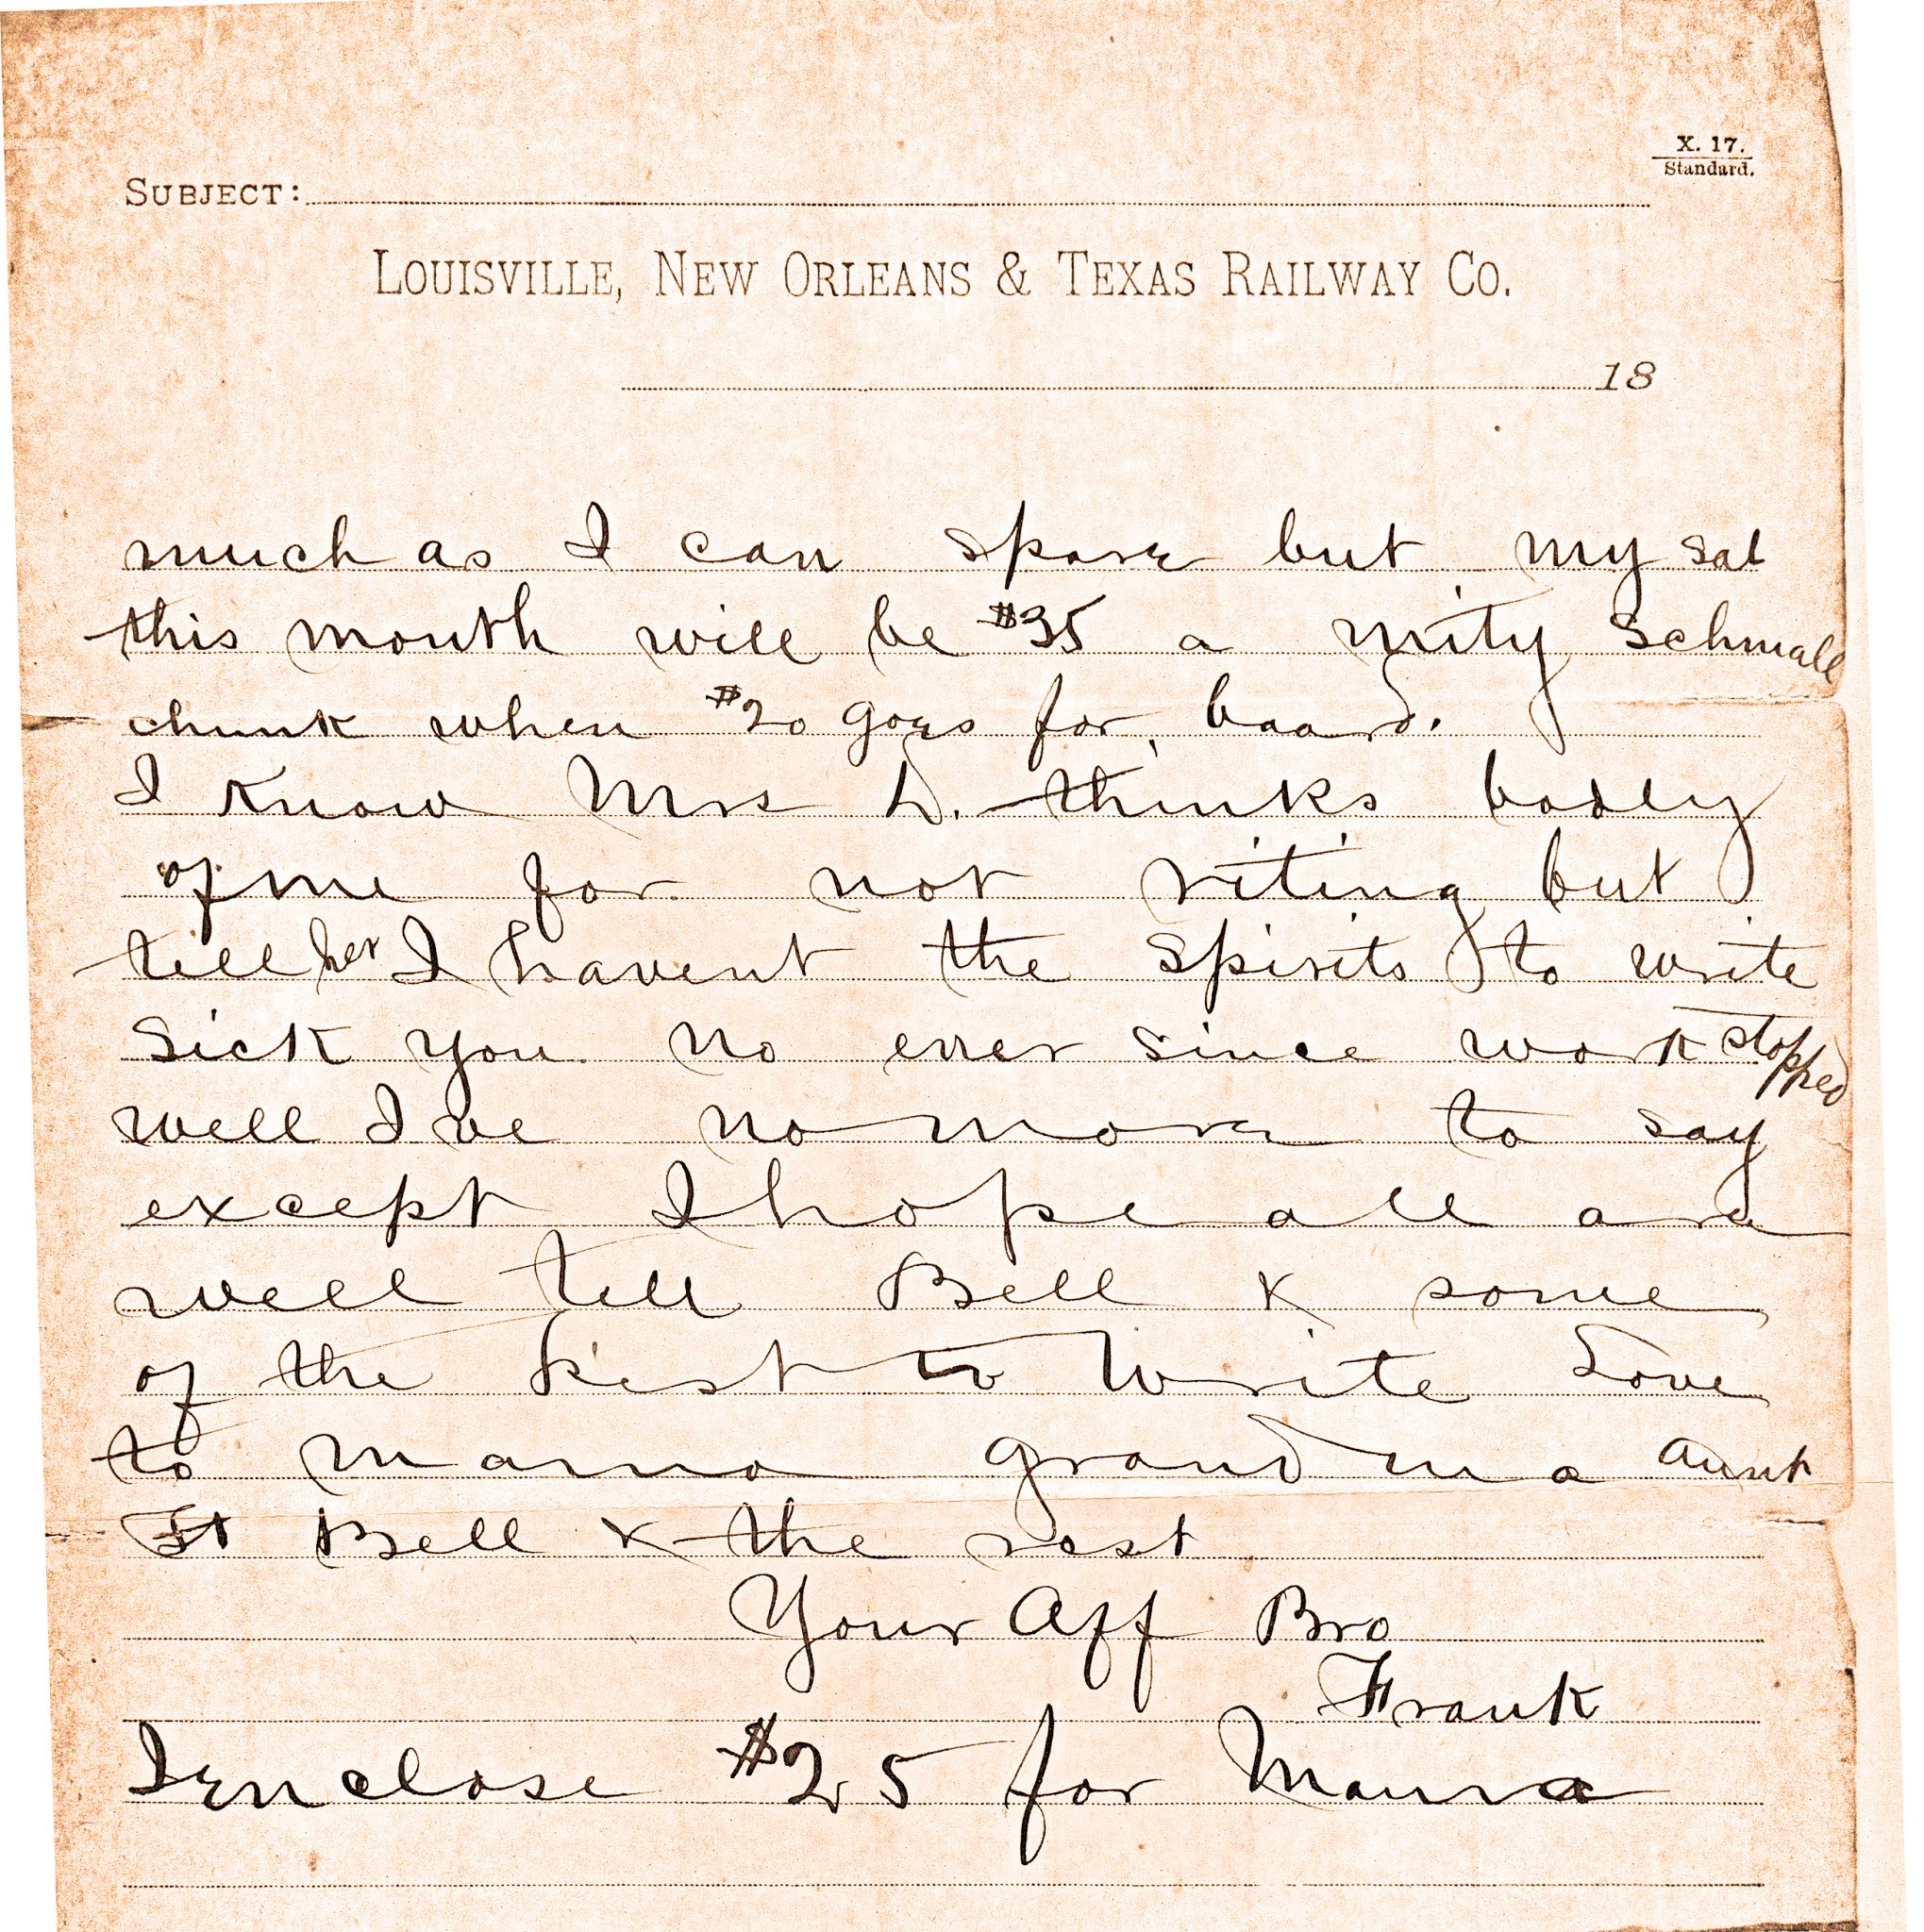 X. 17.
Standard.
SUBJECT:
LOUISVILLE, NEW ORLEANS & TEXAS RAILWAY CO.
18
much as I can spare but my sal
this month will be $35 a mity Schmall
chunk when $20 goes for board.
I Know Mrs D. thinks badly
of me for not riting but
tell her I havent the Spirits to write
Sick you no ever since work stopped
well Ive no more to say
except I hope all are
well tell Bell & some
of the Rest to Write Love
to mama grand ma aunt
Ft Bell & the rest
Your Aff Bro
Frank
I enclose $25 for Mama